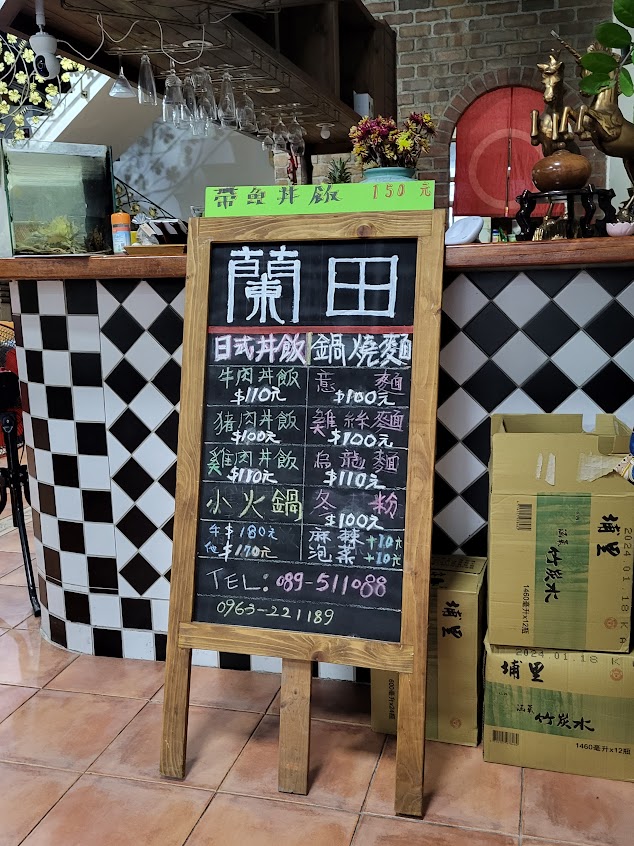 帶魚丼飯 150元
蘭田
日式丼飯
牛肉丼飯
$110元
豬肉丼飯
$100元
雞肉丼飯
$110元
小火鍋
牛$180元
他$170元
鍋燒麵
意麵
$100元
雞絲麵
$100元
烏龍麵
$110元
冬粉
$100元
麻辣+10元
泡菜+10元
TEL:089-511088
0963-221189
埔里
竹炭水
1460毫升x12瓶
2024 01.18 K A
埔里
埔里
竹炭水
1460毫升x12瓶
2024 01.18 K